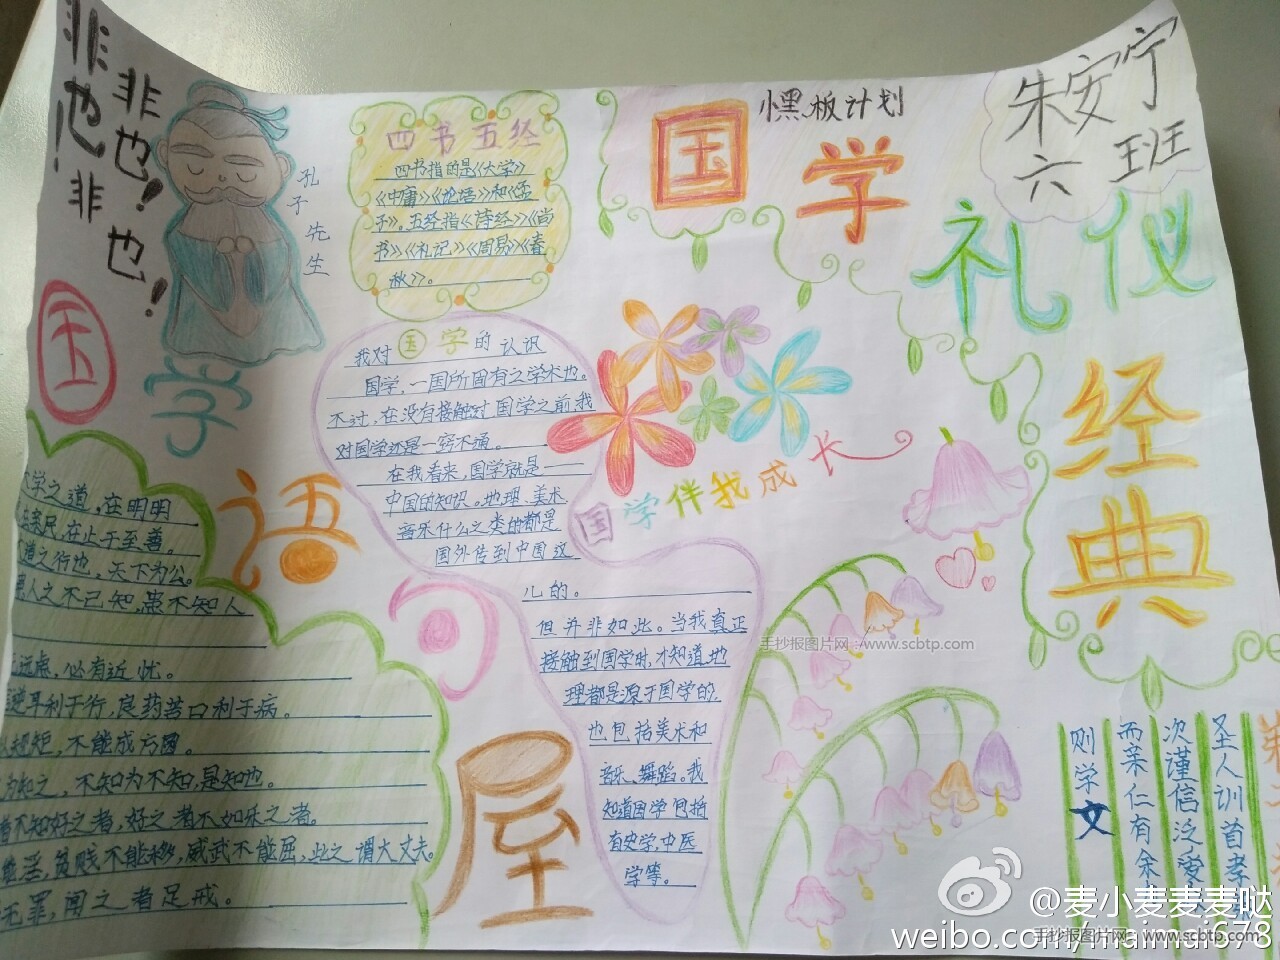 非也!
非也!
非也!
孔子先生
四书五经
四书指的是《大学》
《中庸》《论语》和《孟
子》。五经指《诗经》《尚
书》《礼记》《周易》《春
秋》。
黑板计划
国学
礼仪
经典
朱安宁
六班
国学
语
屋
我对国学的认识
国学,一国所固有之学术也。
不过,在没有接触对国学之前我
对国学还是一窍不通。
在我看来,国学就是一
中国的知识。地理、美术
音乐什么之类的都是
国外传到中国这
儿的。
但并非如此。当我真正
接触到国学时,才知道地
理都是源于国学的,
也包括美术和
音乐、舞蹈。我
知道国学包括
有史学,中医
学等。
国学伴我成长
学之道,在明明
亲民,在止于至善。
道之行也,天下为公。
人之不己知,患不知人
远虑,必有近忧。
逆耳利于行,良药苦口利于病。
短,不能成方圆。
为知之,不知为不知,是知也。
不知好之者,好之者不如乐之者。
能淫,贫贱不能移,威武不能屈,此之谓大丈夫。
无罪,闻之者足戒。
圣人训首孝
次谨信泛爱
而亲仁有余
则学文
手抄报图片网:www.scbtp.com
@麦小麦麦麦哒
weibo.com/maimai678
手抄报图片网:www.scbtp.com